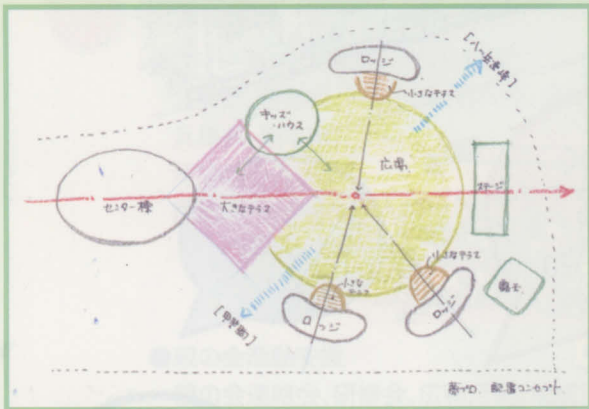 ロッジ
小さなテラス
キッズ
・ハウス
広場
センター棟
大きなテラス
ステージ
小さなテラス
小さな
テラス
ロッジ
ロッジ
配置コンセプト